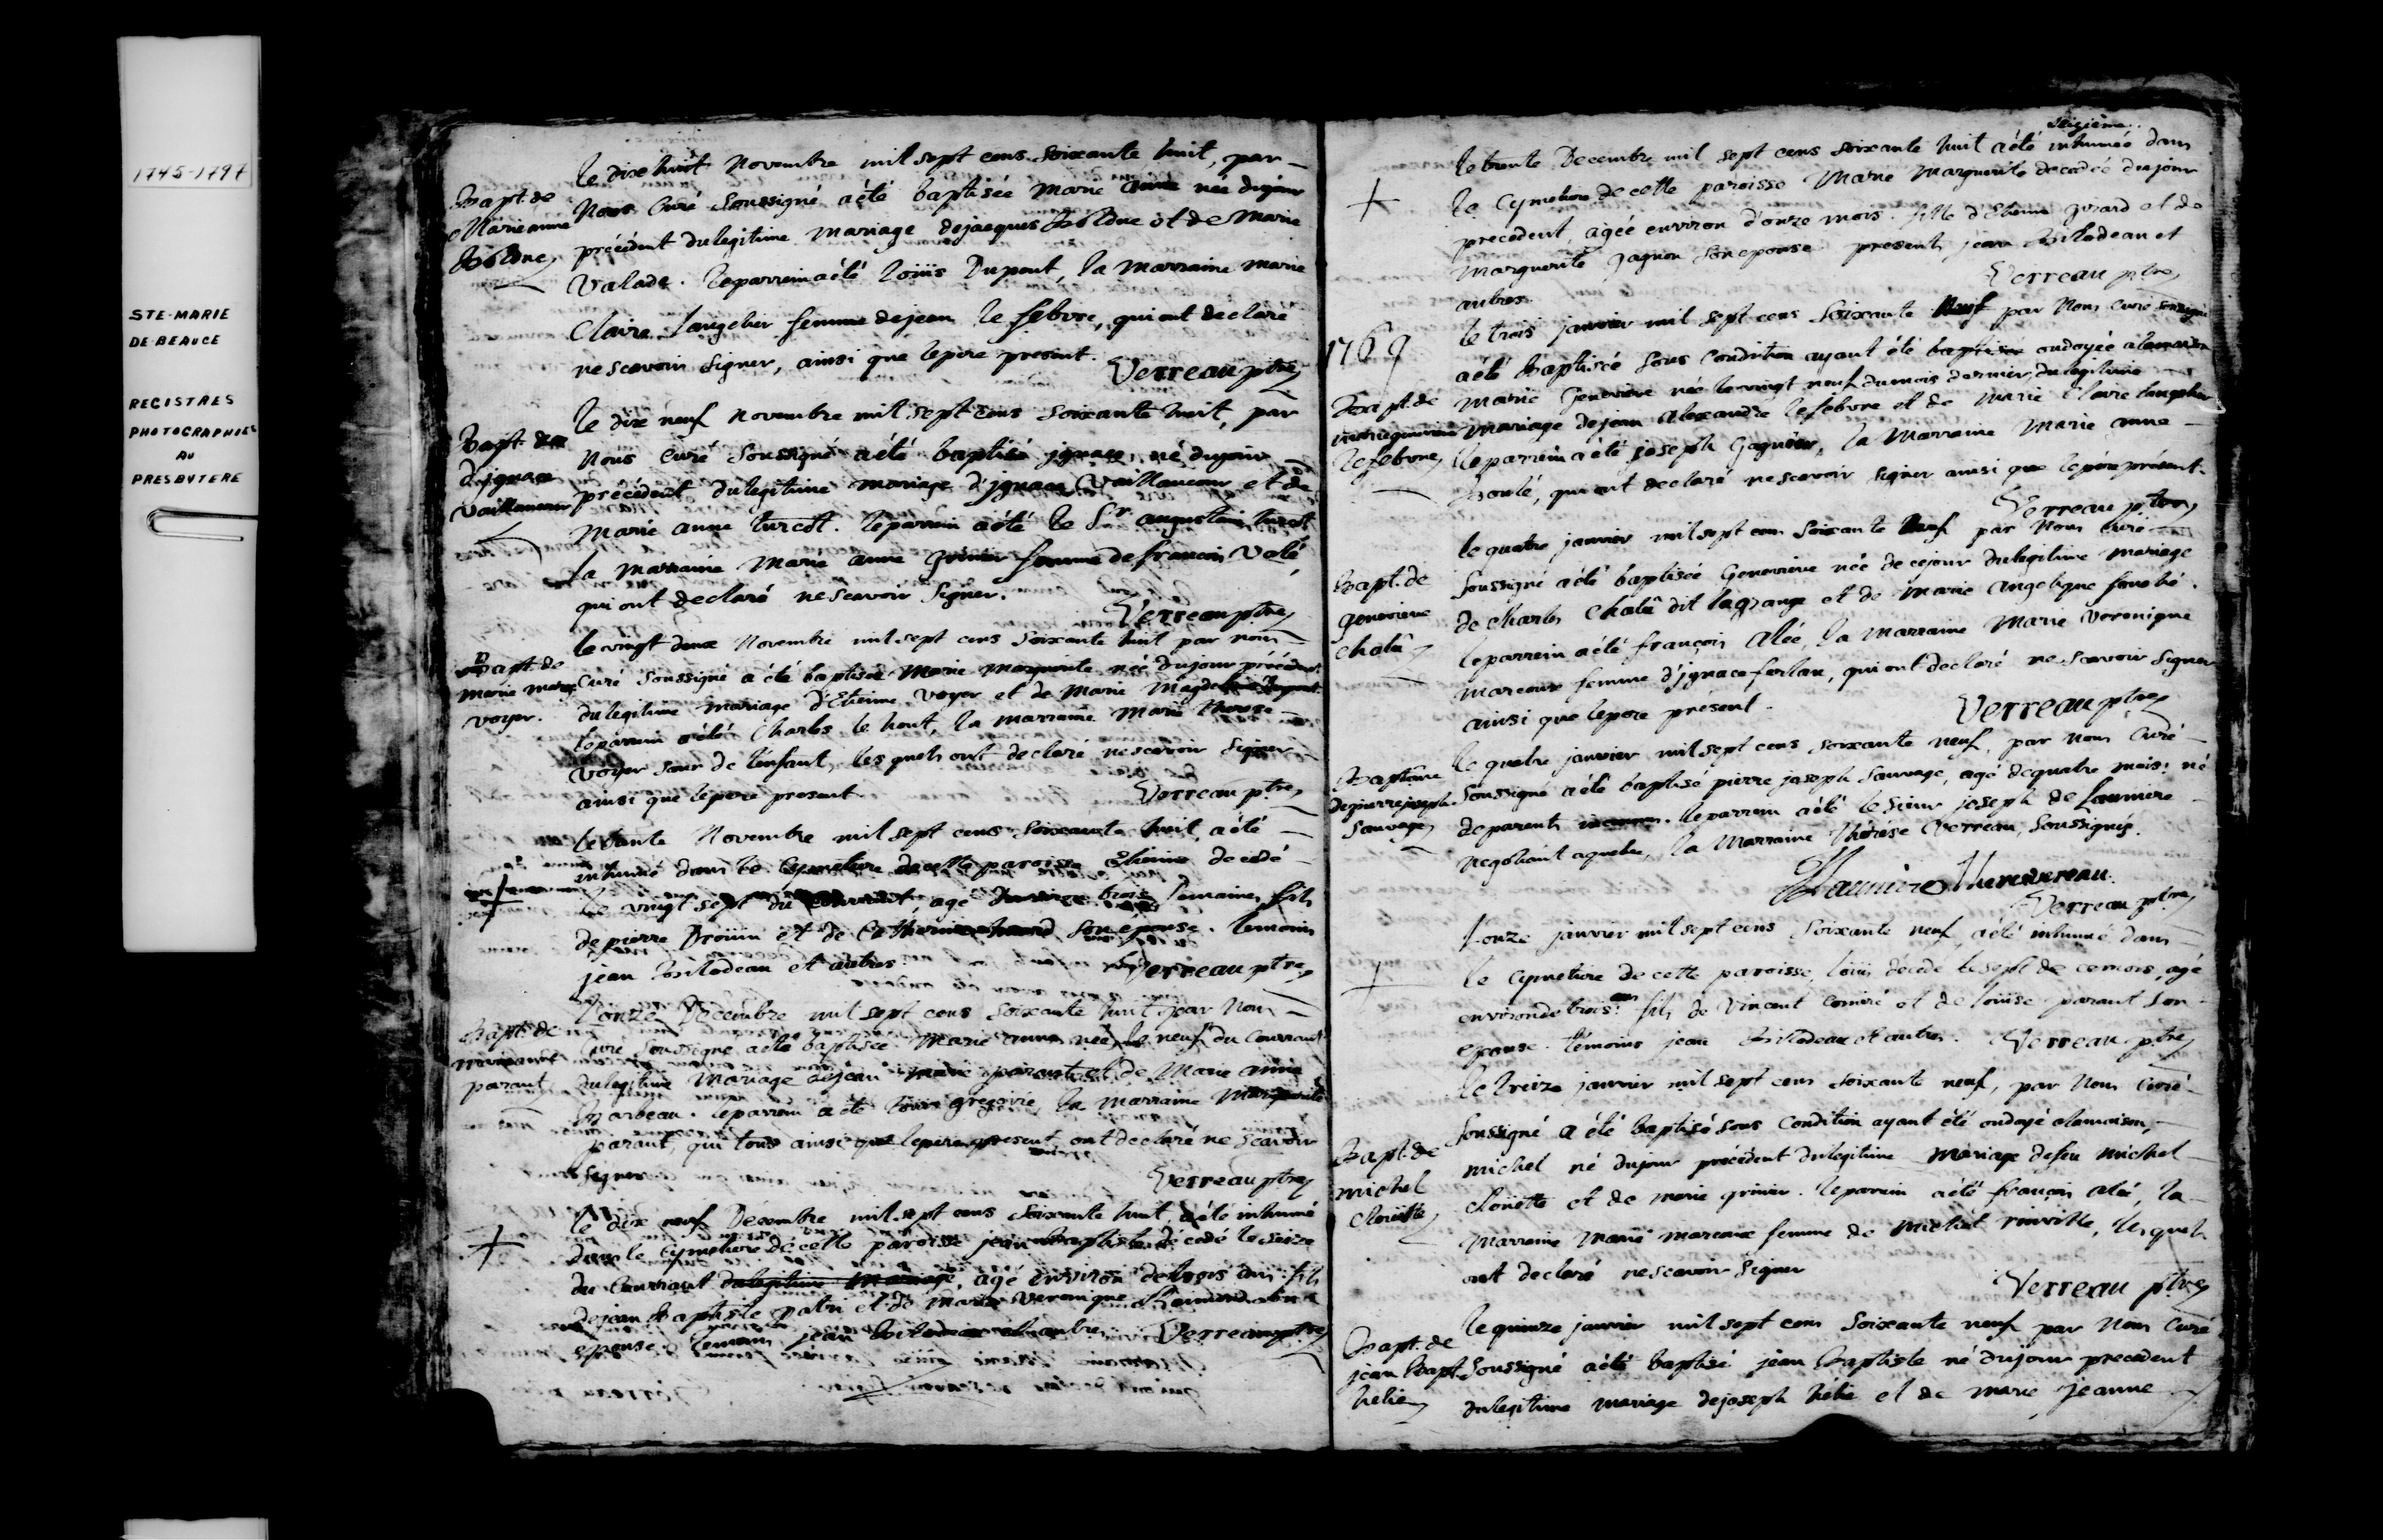 1745-1797
STE-MARIE
DE BEAUCE
REGISTRES
PHOTOGRAPHIES
AU
PRESBYTERE
le dix huit Novembre mil sept cens Soixante huit, par
Bapt. de
Marie anne
Bolduc
Nous Curé Soussigné a été baptisée Marie anne née du jour
précédent du legitime mariage de jacques Bolduc et de Marie
Valade. le parrein a été loüis Dupont, la marraine marie
Claire Langelier femme de jean le febvre, qui ont declaré
ne scavoir signer, ainsi que le pere present.
Verreau ptre
le dix neuf Novembre mil sept cens soixante huit, par
Bapt.
d'ignace
Vaillancour
Nous Curé Soussigné a été baptisé ignace, né du jour
précédent du legitime mariage d'ignace Vaillancour et de
Marie anne turcot. le parrein a été le Sr. augustin turcot
la marraine Marie anne Grinier femme de francois Valé,
qui ont declaré ne scavoir Signer.
Verreau ptre
le vingt deux Novembre mil sept cens Soixante huit par nous
Bapt. de
marie marg.
voyer.
Curé Soussigné a été baptisée Marie Marguerite née du jour précédent
du legitime mariage d'Etienne Voyer et de Marie Magdeleine
le parrein a été Charles le hout, la marraine Marie therese
Voyer Sœur de l'enfant, les quels ont declaré ne scavoir signer
ainsi que le pere present.
Verreau ptre
le trente Novembre mil sept cens Soixante huit, a été
inhumé dans le Cymetiere de cette paroisse Etienne decedé
le vingt sept du Courrant, agé trois Semaines, fils
de pierre Droüin et de Son epouse. temoins
jean Bilodeau et autres.
Verreau ptre
l'onze Decembre mil sept cens soixante huit par Nous
Bapt. de
parant
Curé Soussigné a été baptisée Marie anne née le neuf du Courrant
du legitime Mariage de jean Marie parant et de Marie anne
Barbeau. le parrein a été loüis gregoire, la marraine Marguerite
parant, qui tous ainsi que le pere present, ont declaré ne scavoir
signer
Verreau ptre
le dix neuf Decembre mil sept cens Soixante huit, a été inhumé
dans le Cymetiere de cette paroisse jean Baptiste decedé le seize
du Courrant du legitime Mariage, agé environ de trois ans fils
de jean Baptiste patri et de Marie Veronique
epouse. temoins jean Bilodeau et autres
Verreau ptre
Seizieme
le trente Decembre mil sept cens soixante huit a été inhumée dans
le Cymetiere de cette paroisse Marie Marguerite decedée du jour
precedent, agée environ d'onze mois. fille d'Etienne Girard et de
Marguerite Gagnon Son epouse. presents jean Bilodeau et
autres.
Verreau ptre
1769
le trois janvier mil sept cens Soixante Neuf par Nous Curé Soussigné
a été Baptisée Sous Condition ayant été baptisée ondoyée a la maison
Bapt. de
marie genevieve
lefebvre
Marie Genevieve née le vingt neuf du mois dernier, du legitime
Mariage de jean Alexandre lefebvre et de Marie Claire Langelier
le parrein a été joseph Gagnon, la Marraine Marie anne
Houlé, qui ont declaré ne scavoir signer ainsi que le pere présent.
Verreau ptre
le quatre janvier mil sept cens Soixante Neuf par Nous Curé
Bapt. de
genevieve
chalû
Soussigné a été baptisée Genevieve née de ce jour du legitime mariage
de Charles Chalû dit lagrange et de Marie Angelique
le parrein a été françois Alée, la Marraine Marie Veronique
Marcoux femme d'ignace ferlan, qui ont declaré ne scavoir signer
ainsi que le pere présent.
Verreau ptre
le quatre janvier mil sept cens soixante neuf, par Nous Curé
Baptême
de pierre joseph
Sauvage
Soussigné a été baptisé pierre joseph Sauvage, agé de quatre mois né
de parents inconnus. le parrein a été le Sieur joseph de launiere
negotiant a quebec, la Marraine Thérèse Verreau, Soussignés.
Launiere Therese vereau.
Verreau ptre
l'onze janvier mil sept cens Soixante neuf a été inhumé dans
le Cymetiere de cette paroisse, loüis décédé le sept de ce mois, agé
environ de trois ans fils de Vincent et de loüise parant Son
epouse. témoins jean Bilodeau et autres. Verreau ptre
le treize janvier mil sept cens Soixante neuf, par Nous Curé
Bapt. de
michel
Clouötte
Soussigné a été baptisé Sous Condition ayant été ondoyé a la maison,
michel né du jour précédent du legitime Mariage de feu Michel
Cloüette et de marie grinier. le parrein a été françois alée, la
Marraine Marie marcoux femme de Michel rinville, les quels
ont declaré ne scavoir Signer
Verreau ptre
le quinze janvier mil sept cens Soixante neuf par Nous Curé
Bapt. de
jean Bapt.
helie
Soussigné a été baptisé jean Baptiste né du jour precedent
du legitime mariage de joseph helie et de marie jeanne